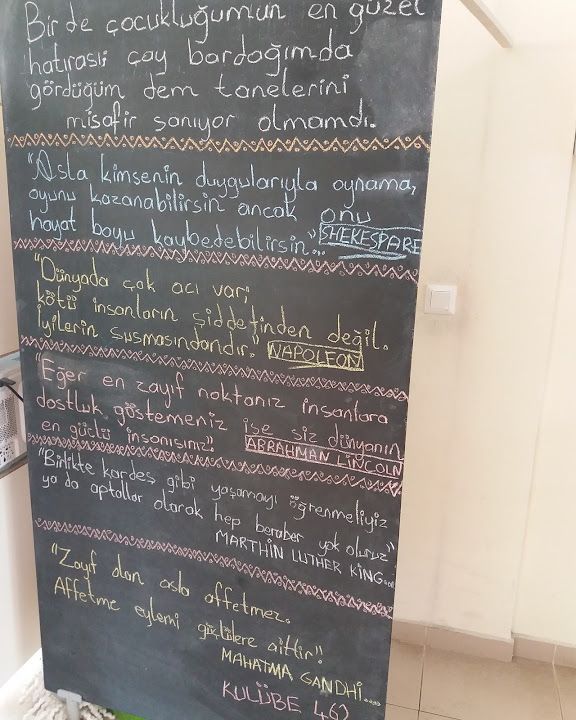 Bir de çocukluğumun en güzel
hatırası çay bardağımda
gördüğüm dem tanelerini
misafir sanıyor olmamdı.
"Asla kimsenin duygularıyla oynama,
oyunu kazanabilirsin ancak onu
hayat boyu kaybedebilirsin"...
SHEKESPARE
"Dünyada çok acı var;
kötü insanların şiddetinden değil.
İyilerin susmasındandır."
NAPOLEON
"Eğer en zayıf noktanız insanlara
dostluk göstemeniz ise siz dünyanın
en güçlü insanısınız"
ABRAHMAN LİNCOLN
"Birlikte kardeş gibi yaşamayı öğrenmeliyiz
ya da aptallar olarak hep beraber yok oluruz"
MARTHİN LUTHER KİNG...
"Zayıf olan asla affetmez.
Affetme eylemi güçlülere aittir!"
MAHATMA GANDHİ....
KULÜBE 462